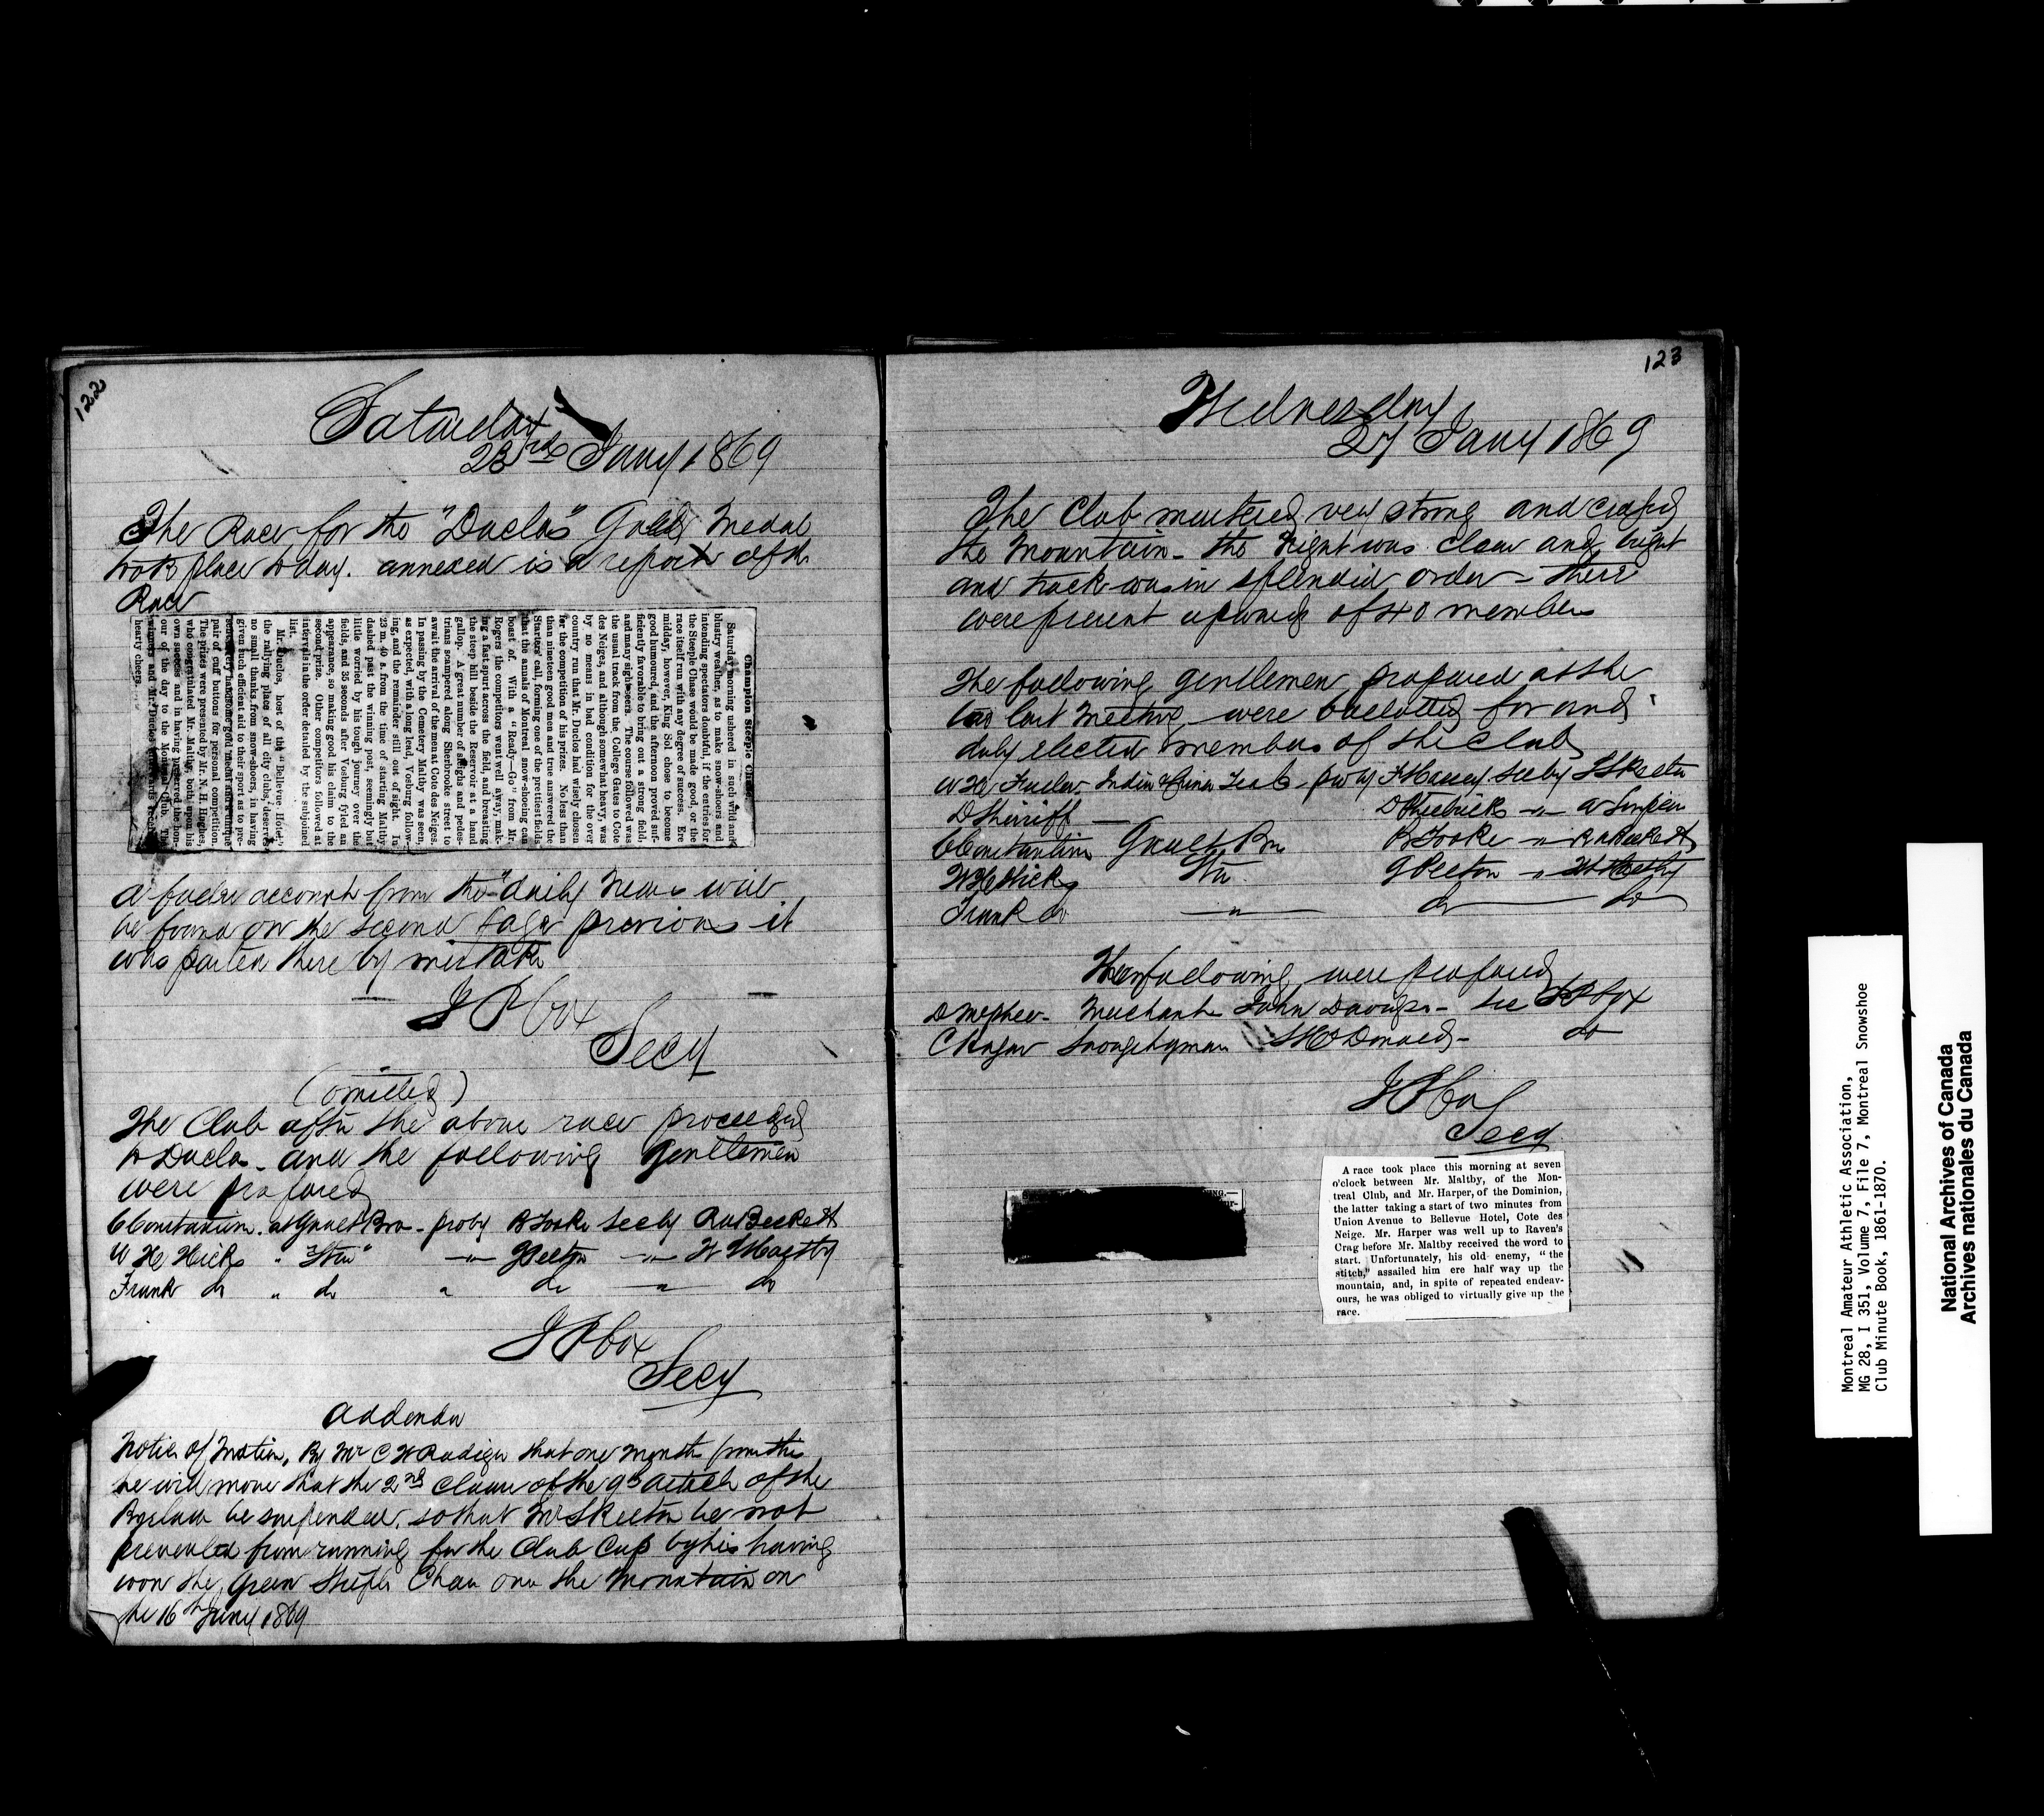 122
Saturday
23rd Jany 1869
The Race for the "Duclos" Gold Medal
took place to day. annexed is a report of the
Race
Champion Steeple Chase.
Saturday morning ushered in such wild and
blustry weather, as to make snow-shoers and
intending spectators doubtful, if the entries for
the Steeple Chase would be made good, or the
race itself run with any degree of success. Ere
midday, however, King Sol chose to become
good humoured, and the afternoon proved suf-
ficiently favorable to bring out a strong field,
and many sightseers. The course followed was
the usual track from the College Gates to Cote
des Neiges, and although somewhat heavy, was
by no means in bad condition for the over
country run that Mr. Duclos had wisely chosen
for the competition of his prizes. No less than
than nineteen good men and true answered the
Starters' call, forming one of the prettiest fields
that the annals of Montreal snow-shoeing can
boast of. With a "Ready—Go" from Mr.
Rogers the competitors went well away, mak-
ing a fast spurt across the field, and breasting
the steep hill beside the Reservoir at a hand
gallop. A great number of sleighs and pedes-
trians scampered along Sherbrooke street to
await the arrival of the men at Cote des Neiges.
In passing by the Cemetery Maltby was seen,
as expected, with a long lead, Vosburg follow-
ing, and the remainder still out of sight. In
23 m. 40 s. from the time of starting Maltby
dashed past the winning post, seemingly but
little worried by his tough journey over the
fields, and 35 seconds after Vosburg fyled an
appearance, so making good his claim to the
second prize. Other competitors followed at
intervals in the order detailed by the subjoined
list.
Mr. Duclos, host of the "Bellevue Hotel,"
the rallying place of all city clubs, deserves
no small thanks from snow-shoers, in having
given such efficient aid to their sport as to pre-
sent a very handsome gold medal and a unique
pair of cuff buttons for personal competition.
The prizes were presented by Mr. N. H. Hughes,
who congratulated Mr. Maltby, both upon his
own success and in having preserved the hon-
our of the day to the Montreal Club. The
winners and Mr. Duclos afterwards received
hearty cheers.
A fuller account from the "daily News will
be found on the second page previous it
was pasted there by mistake
J P Cox
Secy
(omitted)
The Club after the above race proceeded
to Duclos and the following gentlemen
were proposed
C Constantine at Gault Bro - pro by B Tooke sec by R A Beckett
W H Hicks " Stu" — " — G Seeton — " — W L Maltby
Frank do " do " do " do
J P Cox
Secy
Addenda
Notice of Motion, By Mr C W Radiger that one month from this
he will move that the 2nd Clause of the 9th article of the
Byelaws be suspended. so that Mr Skeeton be not
prevented from running for the Club Cup by his having
won the Green Steeple Chase over the Mountain on
the 16th Jany 1869
123
Wednesday
27 Jany 1869
The Club mustered very strong and crossed
the Mountain - the Night was clear and bright
and track was in splendid order - There
were present upwards of 40 members
The following gentlemen proposed at the
last Meeting were ballotted for and
duly elected members of the Club
W H Fuller India & China Tea Co - pro by F Massey sec by T Skeeton
D Shirriff — " — W Simpson
C Constantine Gault Bro B Tooke — " — R A Beckett
W H Hicks Stu G Seeton — " — W L Maltby
Frank do — " — do — do
The following were proposed
D McPhee - Merchant John Davidson - sec J P Cox
C Rager J McDonald - do
J P Cox
Secy
A race took place this morning at seven
o'clock between Mr. Maltby, of the Mon-
treal Club, and Mr. Harper, of the Dominion,
the latter taking a start of two minutes from
Union Avenue to Bellevue Hotel, Cote des
Neige. Mr. Harper was well up to Raven's
Crag before Mr. Maltby received the word to
start. Unfortunately, his old enemy, "the
stitch," assailed him ere half way up the
mountain, and, in spite of repeated endeav-
ours, he was obliged to virtually give up the
race.
Montreal Amateur Athletic Association,
MG 28, I 351, Volume 7, File 7, Montreal Snowshoe
Club Minute Book, 1861-1870.
National Archives of Canada
Archives nationales du Canada